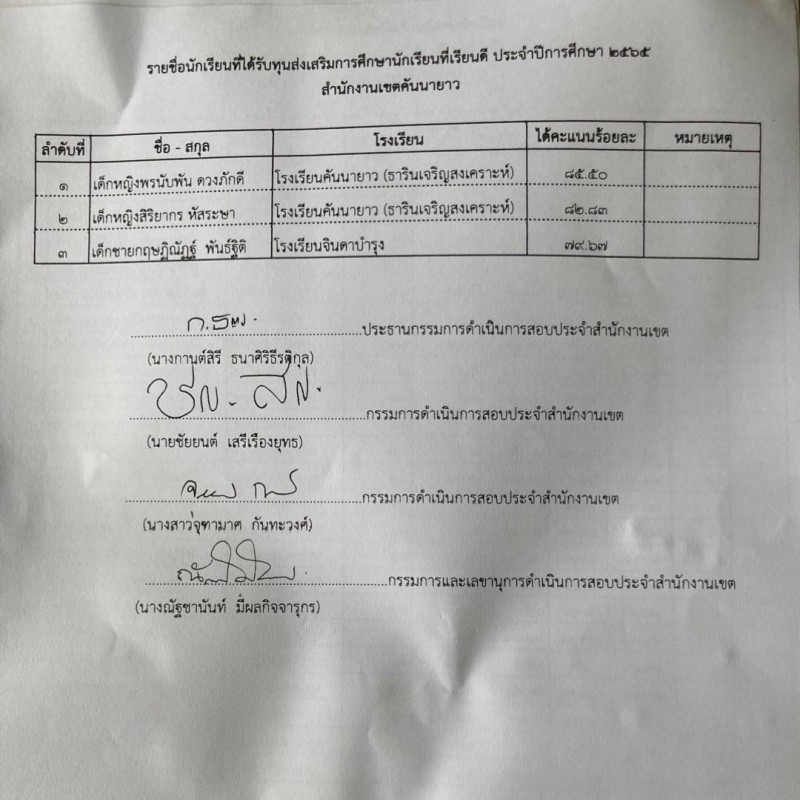 รายชื่อนักเรียนที่ได้รับทุนส่งเสริมการศึกษานักเรียนที่เรียนดี ประจำปีการศึกษา ๒๕๖๕
สำนักงานเขตคันนายาว
ลำดับที่ ชื่อ - สกุล โรงเรียน ได้คะแนนร้อยละ หมายเหตุ
๑ เด็กหญิงพรนับพัน ดวงภักดี โรงเรียนคันนายาว (ธารินเจริญสงเคราะห์) ๘๕.๕๐
๒ เด็กหญิงสิริยากร หัสระษา โรงเรียนคันนายาว (ธารินเจริญสงเคราะห์) ๘๒.๘๓
๓ เด็กชายกฤษฏิณัฏฐ์ พันธ์ฐิติ โรงเรียนจินดาบำรุง ๗๙.๖๗
ประธานกรรมการดำเนินการสอบประจำสำนักงานเขต
(นางกานต์สิรี ธนาศิริธีรติกุล)
กรรมการดำเนินการสอบประจำสำนักงานเขต
(นายชัยยนต์ เสรีเรืองยุทธ)
กรรมการดำเนินการสอบประจำสำนักงานเขต
(นางสาวจุฑามาศ กันทะวงศ์)
กรรมการและเลขานุการดำเนินการสอบประจำสำนักงานเขต
(นางณัฐชานันท์ มีผลกิจจารุกร)